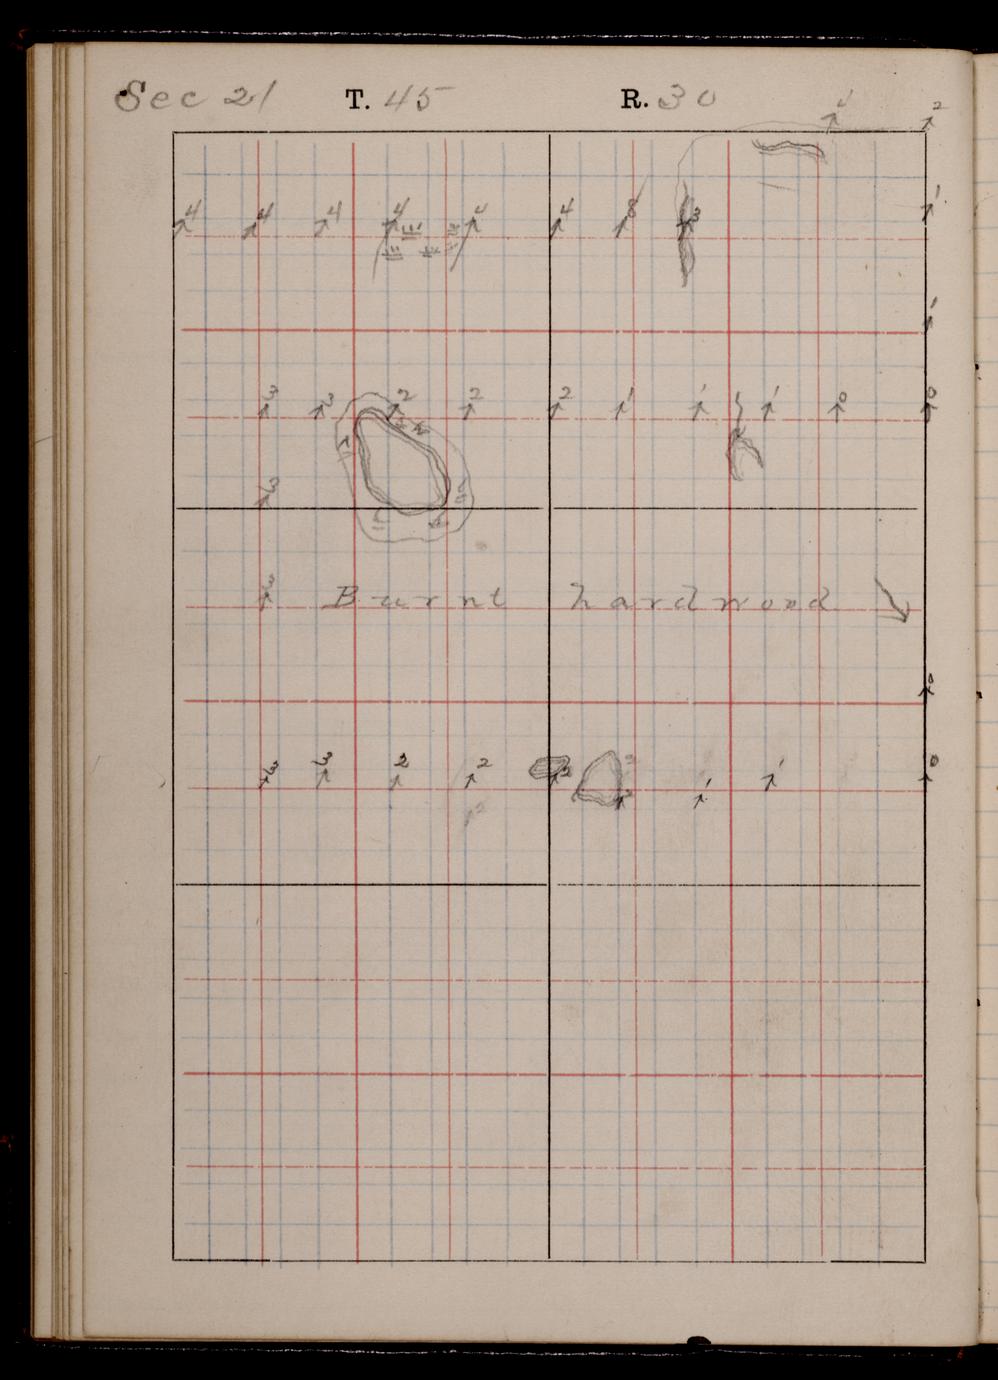 Sec 21 T. 45 R. 30
4 2
4 4 4 4 4 4 8 3 1
1
3 3 2 2 2 1 1 1 0 0
3
3 Burnt hardwood
0
3 3 2 2 2 1 1 0
2